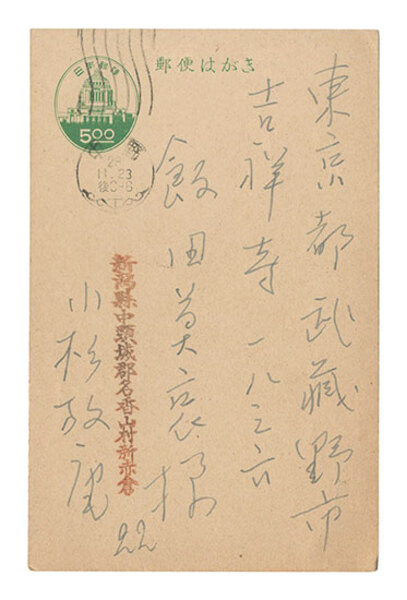 郵便はがき
日本郵便
5.00
28
11.23
後0-6
東京都武蔵野市
吉祥寺一八三六
飯田
様
新潟縣中頸城郡名香山村新赤倉
小杉放庵
22